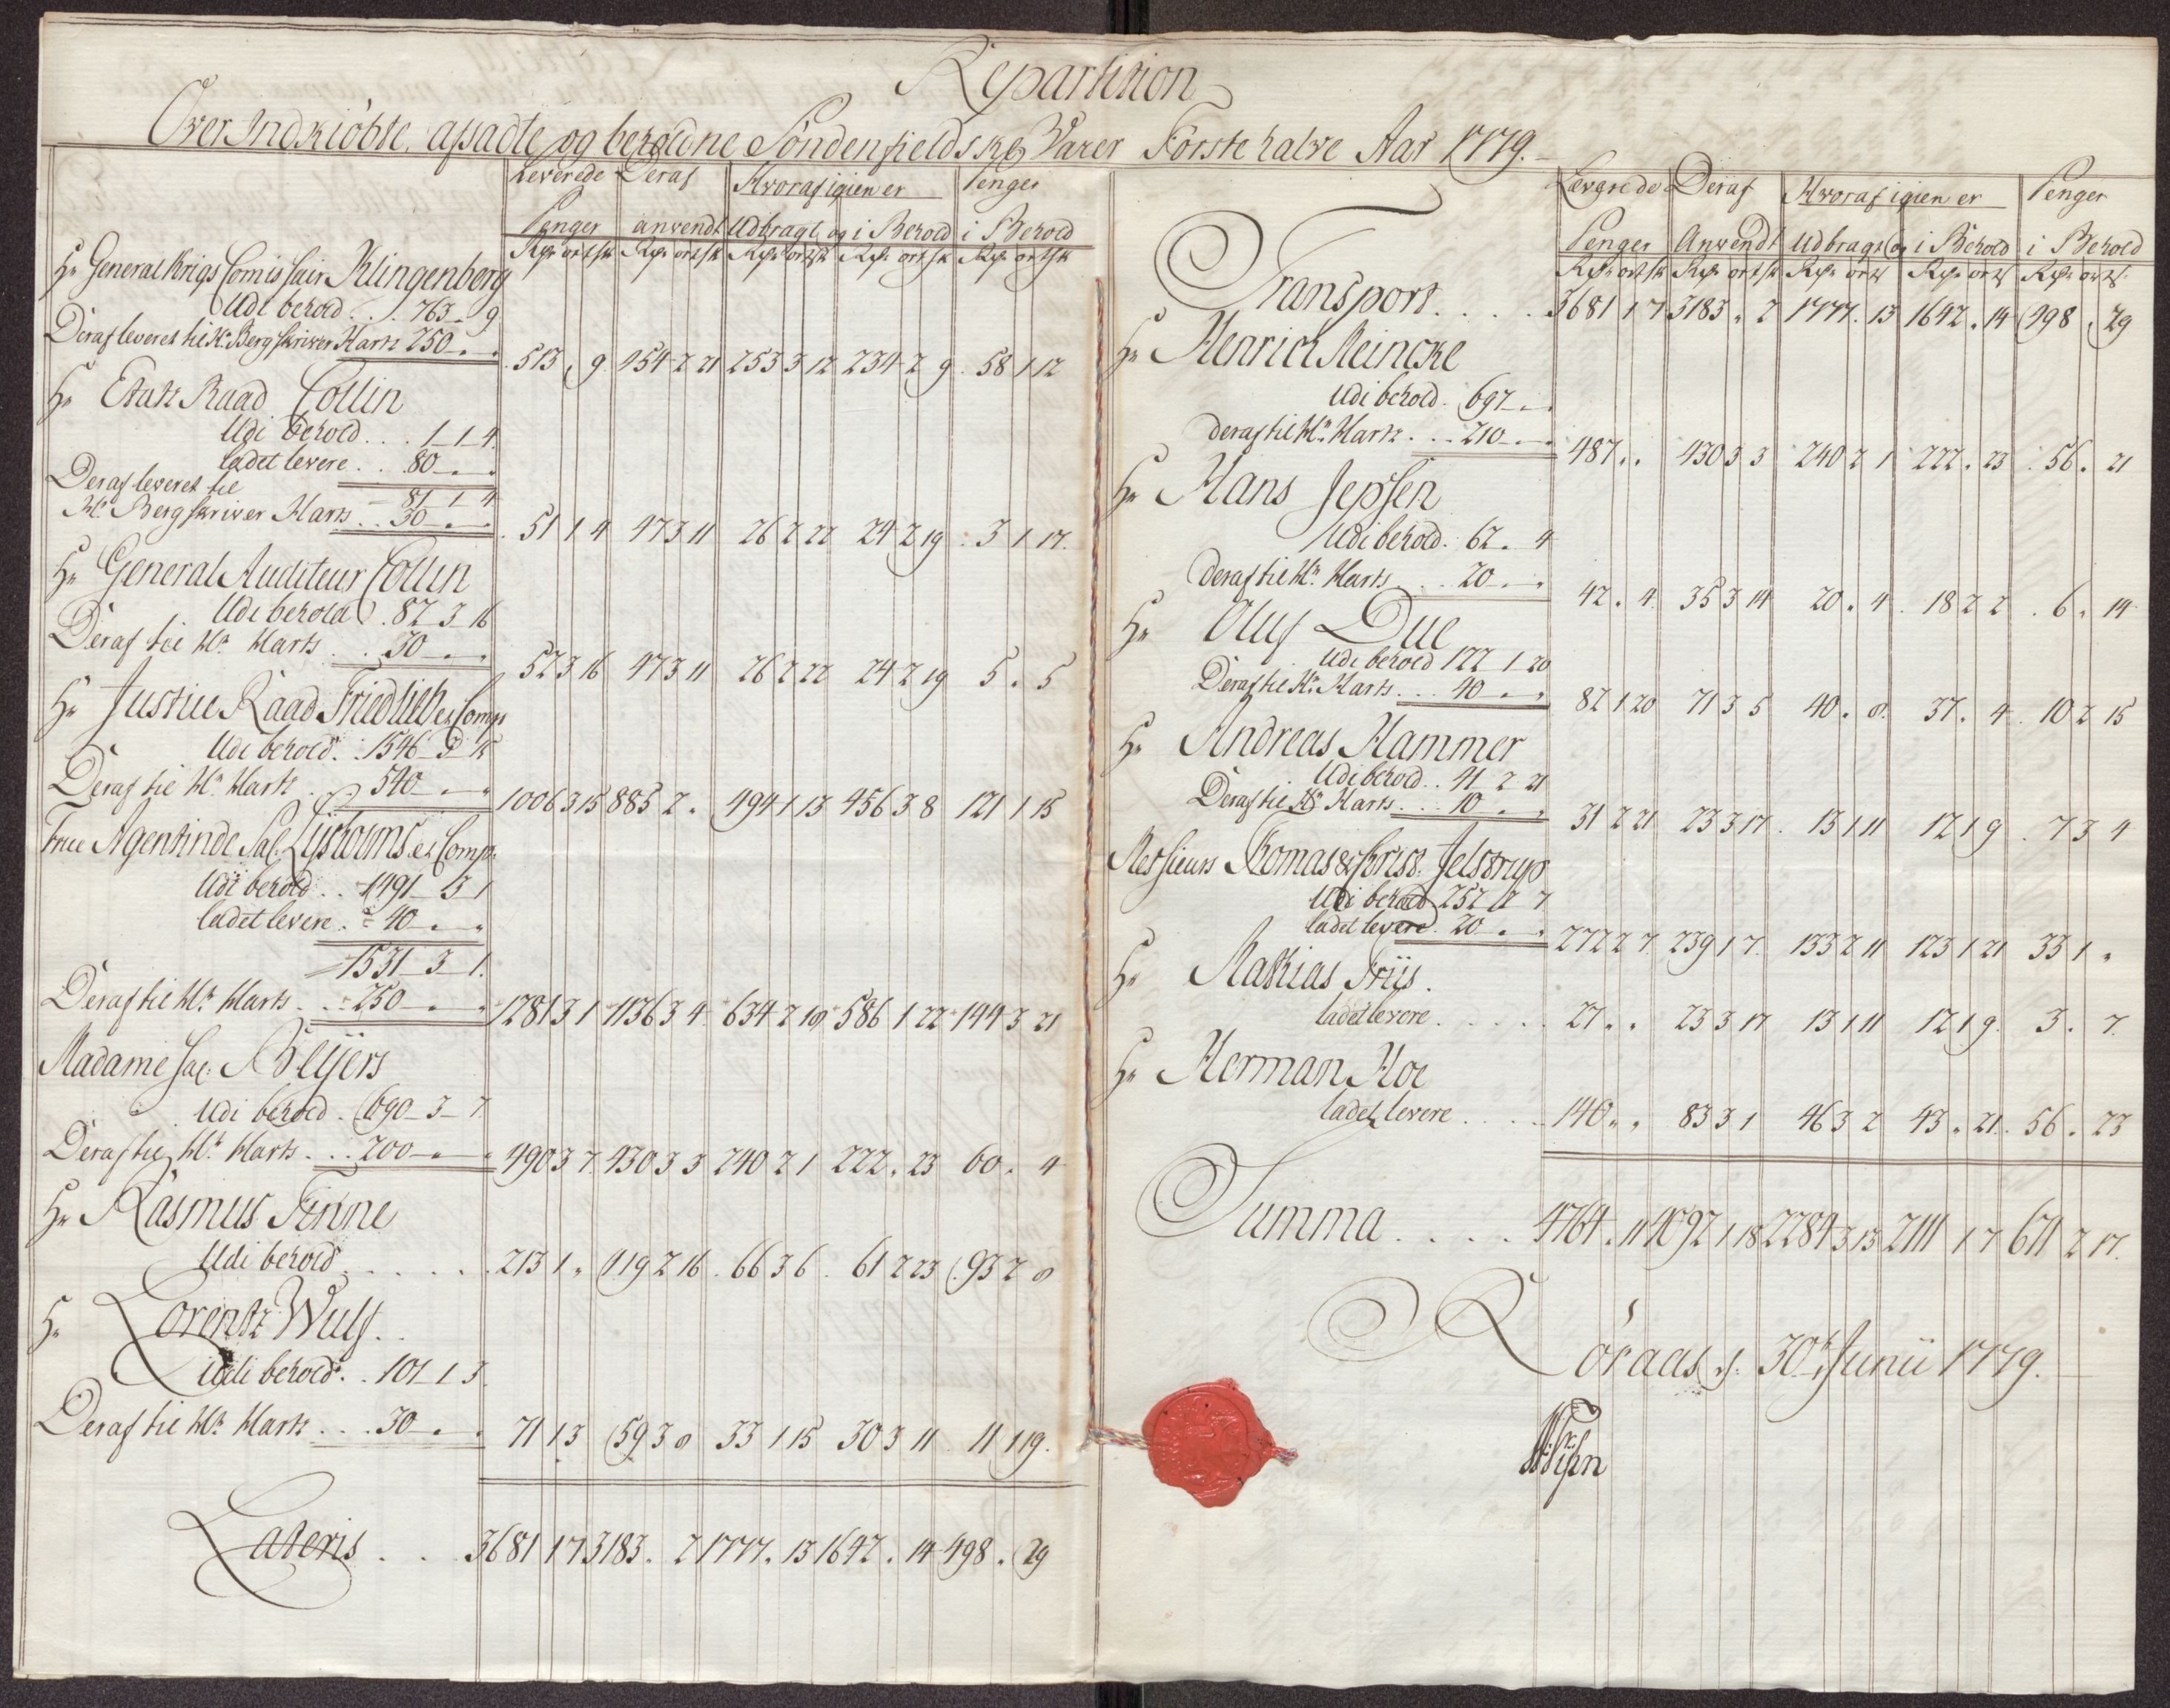 Repartition
Over Indkiöbte, afsadte og beholdne Söndenfieldske Varer Förste halve Aar 1779.
Leverede Deraf Hvoraf igien er Penger
Penger anvendt Udbragt og i Behold i Behold
Rdr ort sk Rdr ort sk Rdr ort sk Rdr ort sk Rdr ort sk
Hr General Krigs Comissair Klingenberg
Udi behold . . . 763 " 9
Deraf leveret til Hr Bergskriver Hartz 250 " "
513 " 9 454 2 21 253 3 12 234 2 9 58 1 12
Hr Etatz Raad Collin
Udi behold . . . 1 1 4
ladet levere . . 80 " "
81 1 4
Deraf leveret til
Hr Bergskriver Hartz . . 30 " "
51 1 4 47 3 11 26 2 22 24 2 19 3 1 17
Hr General Auditeur Collin
Udi behold . 82 3 16
Deraf til Hr Hartz . . 30 " "
52 3 16 47 3 11 26 2 22 24 2 19 5 " 5
Hr Justice Raad Friedlieb et Comp.
Udi behold . 1546 3 15
Deraf til Hr Hartz . . 540 " "
1006 3 15 885 2 " 494 1 13 456 3 8 121 1 15
Frue Agentinde Sal. Lÿstoums et Comp.
Udi behold . . 1491 3 1
ladet levere . 40 " "
1531 3 1
Deraf til Hr Hartz . . 250 " "
1281 3 1 1136 3 4 634 2 18 586 1 22 144 3 21
Madame Sal. Meÿers
Udi behold . 690 3 7
Deraf til Hr Hartz . . . 200 " "
490 3 7 430 3 3 240 2 1 222 " 23 60 " 4
Hr Rasmus Finne
Udi behold . . . . . 213 1 " 119 2 16 66 3 6 61 2 23 93 2 8
Hr Lorentz Wulf . .
Udi behold . . 101 1 3
Deraf til Hr Hartz . . . 30 " "
71 1 3 59 3 8 33 1 15 30 3 11 11 1 19
Lateris . . . 3681 1 7 3183 " 2 1777 " 13 1642 " 14 498 " 29
Leverede Deraf Hvoraf igien er Penger
Penger Anvendt Udbragt og i Behold i Behold
Rdr ort sk Rdr ort sk Rdr ort s Rdr ort s Rdr ort s
Transport . . . . 3681 1 7 3183 " 2 1777 " 13 1642 " 14 498 " 29
Hr Henrich Meincke
Udi behold . 697 " "
deraf til Hr Hartz . . . 210 " "
487 " " 430 3 3 240 2 1 222 " 23 56 " 21
Hr Hans Jepsen
Udi behold . 62 " 4
deraf til Hr Hartz . . 20 " "
42 " 4 35 3 14 20 " 4 18 2 2 6 " 14
Hr Oluf Due
Udi behold 122 1 20
Deraf til Hr Hartz . . . 40 " "
82 1 20 71 3 5 40 " 8 37 " 4 10 2 15
Hr Andreas Hammer
Udi behold . . 41 2 21
Deraf til Hr Hartz . . . 10 " "
31 2 21 23 3 17 13 1 11 12 1 9 7 3 4
Messieurs Thomas & Christ. Jelstrup
Udi behold 252 2 7
ladet levere 20 " "
272 2 7 239 1 7 133 2 11 123 1 21 33 1 "
Hr Mathias Friis .
ladet levere . . . . . 27 " " 23 3 17 13 1 11 12 1 9 3 " 7
Hr Herman Hoe
ladet levere . . . . . 140 " " 83 3 1 46 3 2 43 " 21 56 " 23
Summa . . . . 4764 " 11 4092 1 18 2284 3 13 2111 1 7 671 2 17
Röraas d. 30te Junii 1779.